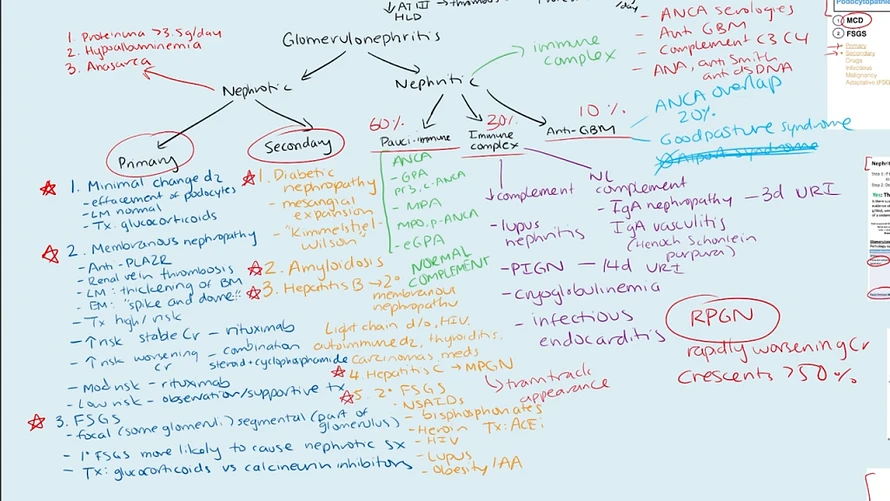 ↓ATIII → thrombosis
/day
HLD
1. Proteinuria >3.5g/day
2. Hypoalbuminemia
3. Anasarca
Glomerulonephritis
Nephrotic
Nephritic
immune
complex
- ANCA serologies
- Anti GBM
- Complement C3 C4
- ANA, anti Smith
anti dsDNA
Primary
Secondary
60%
Pauci-immune
30%
Immune
complex
10%
Anti-GBM
ANCA overlap
20%
Goodpasture syndrome
1. Minimal change dz
- effacement of podocytes
- LM normal
- Tx: glucocorticoids
2. Membranous nephropathy
- Anti-PLA2R
- Renal vein thrombosis
- LM: thickening of BM
- EM: "spike and dome"
- Tx high/risk
- ↑risk stable Cr - rituximab
- ↑risk worsening Cr - combination
steroid + cyclophosphamide
- Mod risk - rituximab
- Low risk - observation/supportive tx
3. FSGS
- focal (some glomeruli) segmental (part of
glomerulus)
- 1° FSGS more likely to cause nephrotic sx
- Tx: glucocorticoids vs calcineurin inhibitors
1. Diabetic
nephropathy
- mesangial
expansion
- "Kimmelstiel-
Wilson"
2. Amyloidosis
3. Hepatitis B → 2°
membranous
nephropathy
Light chain d/o, HIV,
autoimmune dz, thyroiditis,
carcinomas, meds
4. Hepatitis C → MPGN
5. 2° FSGS
- NSAIDs
- bisphosphonates
- Heroin Tx: ACEi
- HIV
- Lupus
- Obesity/AA
ANCA
- GPA
PR3, c-ANCA
- MPA
MPO, p-ANCA
- eGPA
NORMAL
COMPLEMENT
↓complement
- lupus
nephritis
- PIGN - 14d URI
- cryoglobulinemia
- infectious
endocarditis
↳ tram track
appearance
NL
complement
- IgA nephropathy - 3d URI
IgA vasculitis
(Henoch Schonlein
purpura)
RPGN
rapidly worsening Cr
crescents >50%
Podocytopathie
1 MCD
2 FSGS
Primary
Secondary
Drugs
Infectious
Malignancy
Adaptive (FSG
Nephriti